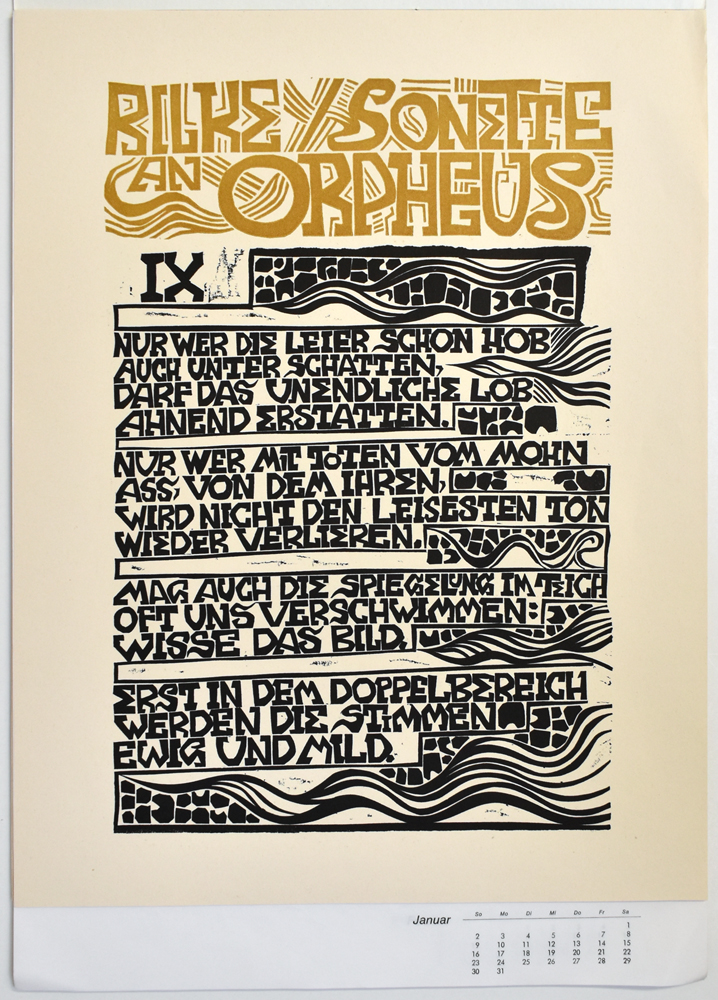 RILKE / SONETTE
AN ORPHEUS
IX
NUR WER DIE LEIER SCHON HOB
AUCH UNTER SCHATTEN,
DARF DAS UNENDLICHE LOB
AHNEND ERSTATTEN.
NUR WER MIT TOTEN VOM MOHN
ASS, VON DEM IHREN,
WIRD NICHT DEN LEISESTEN TON
WIEDER VERLIEREN.
MAG AUCH DIE SPIEGELUNG IM TEICH
OFT UNS VERSCHWIMMEN:
WISSE DAS BILD.
ERST IN DEM DOPPELBEREICH
WERDEN DIE STIMMEN
EWIG UND MILD.
Januar
So Mo Di Mi Do Fr Sa
1
2 3 4 5 6 7 8
9 10 11 12 13 14 15
16 17 18 19 20 21 22
23 24 25 26 27 28 29
30 31